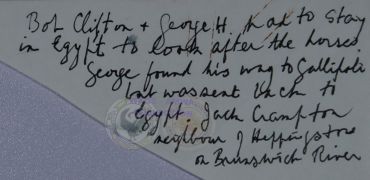 Bob Clifton + George H. had to stay
in Egypt to look after the horses.
George found his way to Gallipoli
but was sent back to
Egypt. Jack Crampton
neighbour of Heppingstone
on Brunswick River